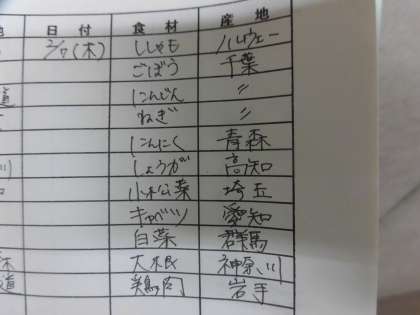 日付 食材 産地
2/7(木) ししゃも ノルウェー
ごぼう 千葉
道 にんじん 〃
ねぎ 〃
にんにく 青森
しょうが 高知
小松菜 埼玉
キャベツ 愛知
白菜 群馬
大根 神奈川
道 鶏肉 岩手